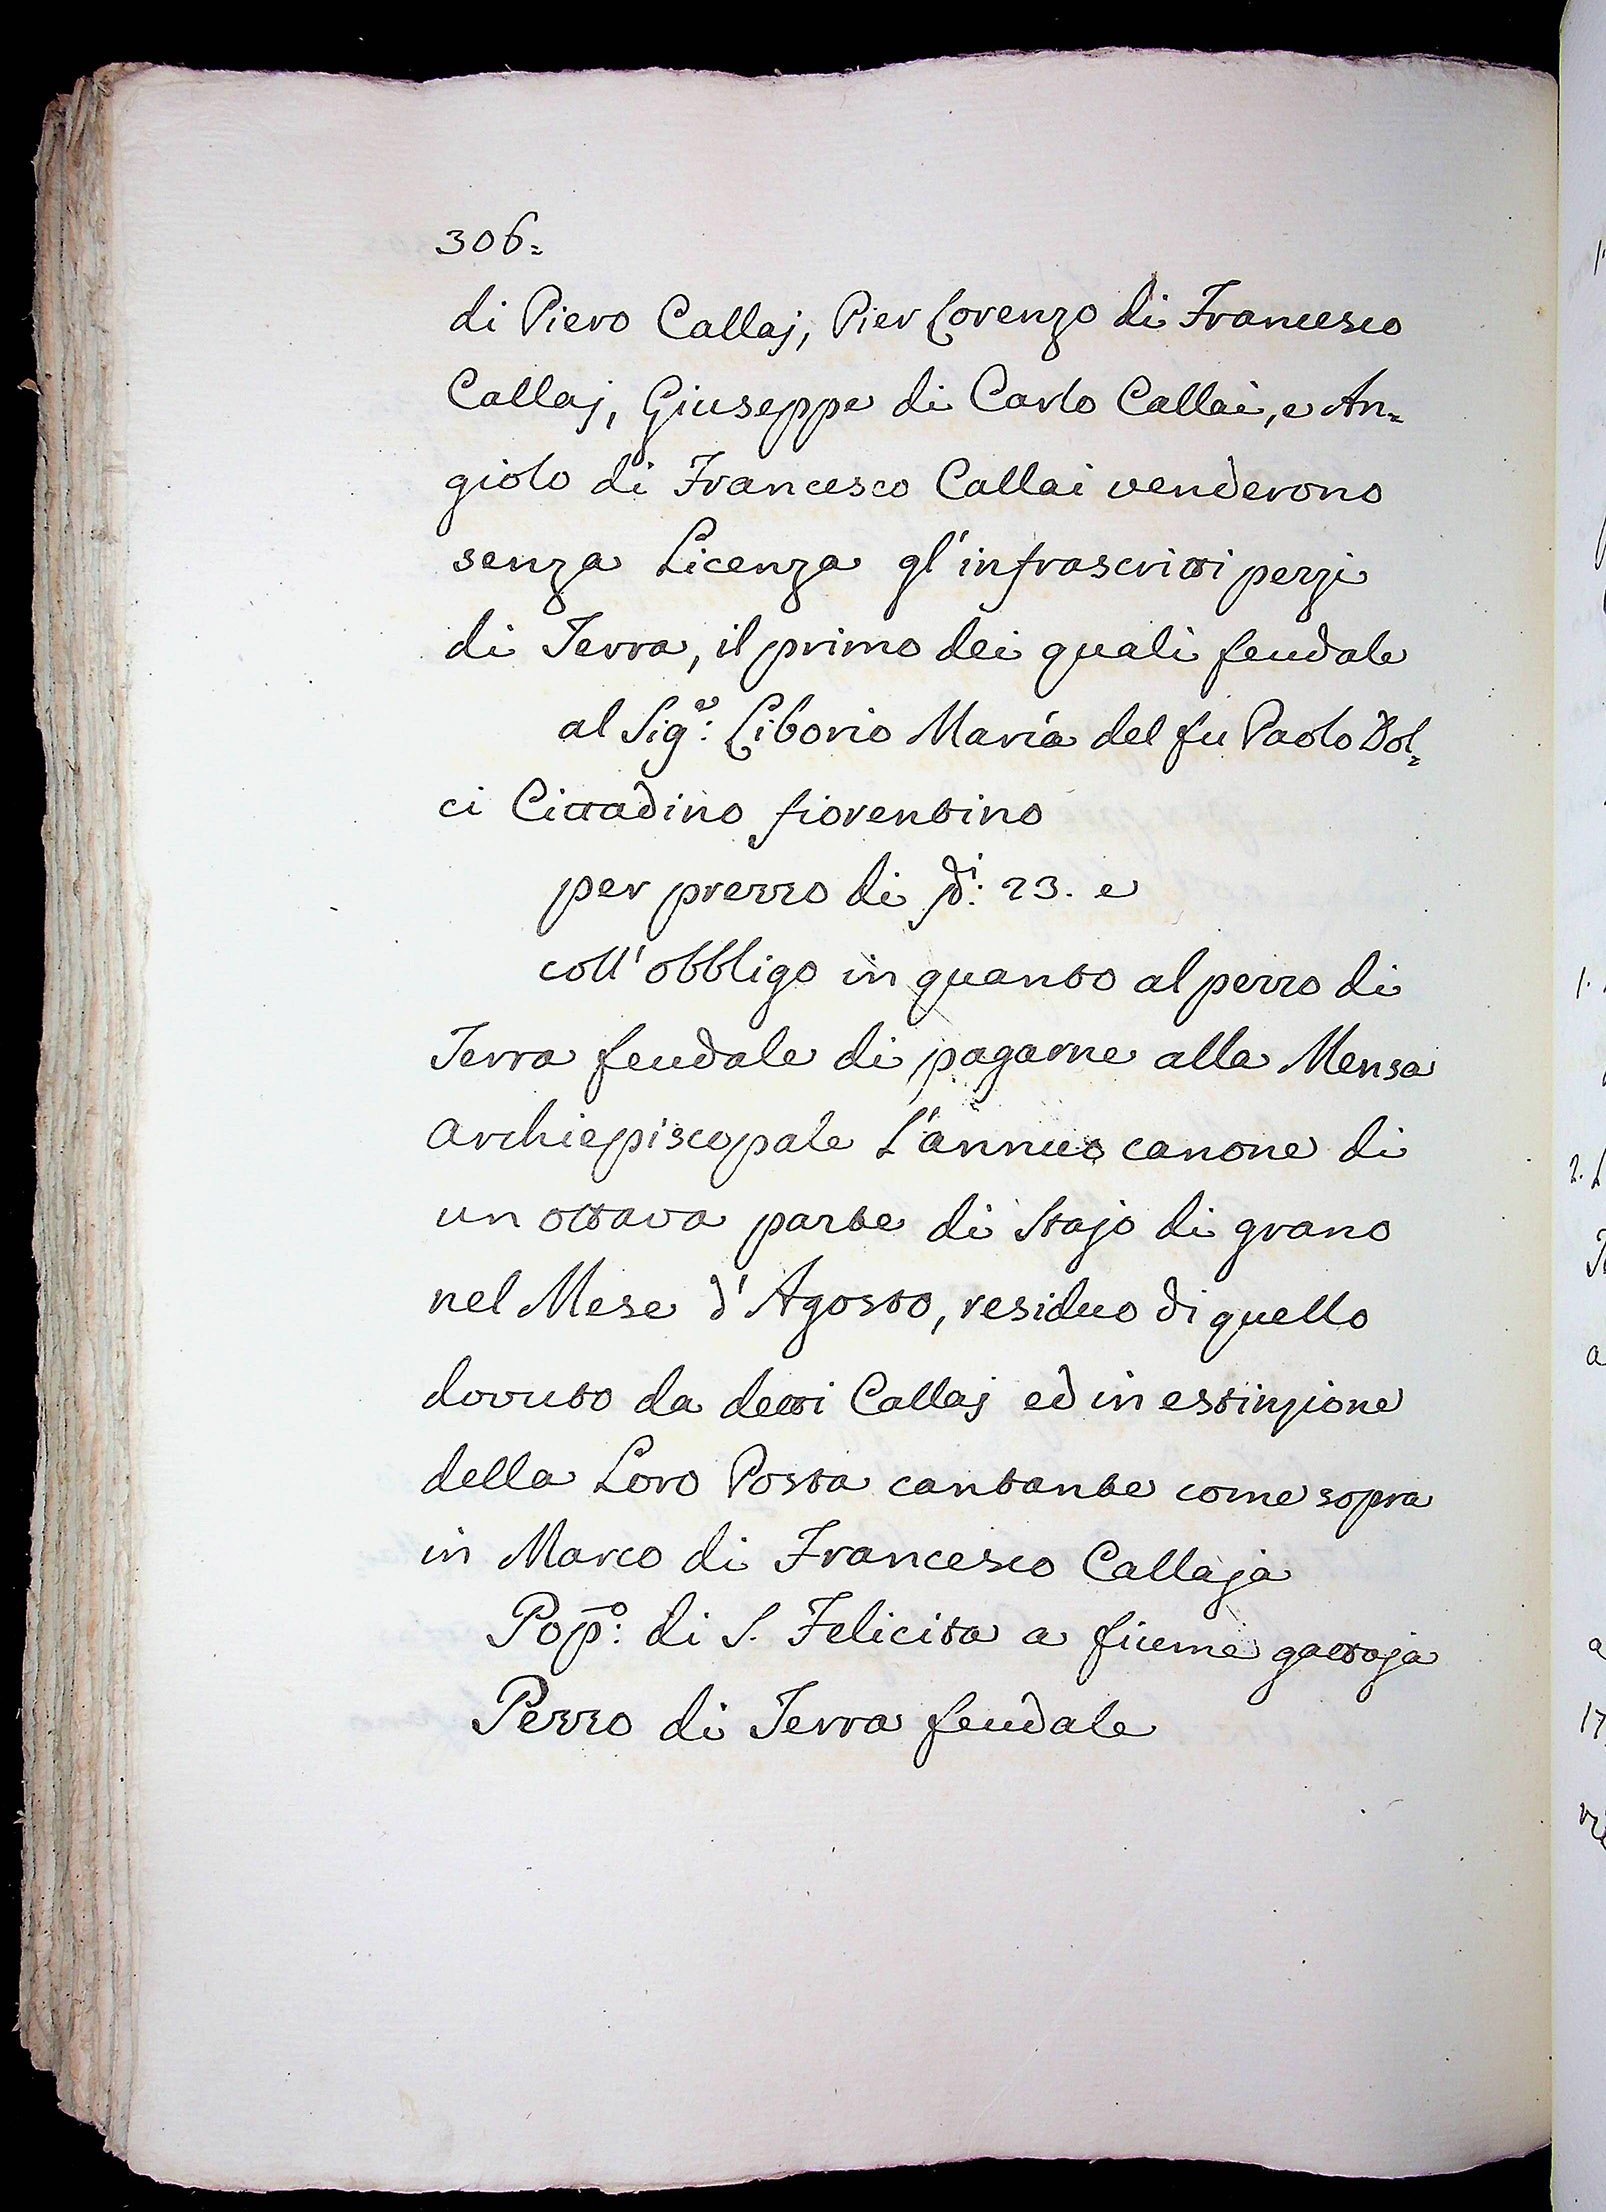 306=
di Piero Callaj, Pier Lorenzo di Francesco
Callaj, Giuseppe di Carlo Callai, e An=
giolo di Francesco Callai venderono
senza Licenza gl'infrascritti pezzi
di Terra, il primo dei quali feudale
al Sig.e: Liborio Maria del fu Paolo Dol=
ci Cittadino fiorentino
per prezzo di 23. e
coll'obbligo in quanto al pezzo di
Terra feudale di pagarne alla Mensa
Archiepiscopale L'annuo canone di
un ottava parte di Stajo di grano
nel Mese d'Agosto, residuo di quello
dovuto da detti Callaj ed in estinzione
della Loro Posta cantante come sopra
in Marco di Francesco Callaja
Pop.o: di S. Felicita a fiume gattaja
Pezzo di Terra feudale